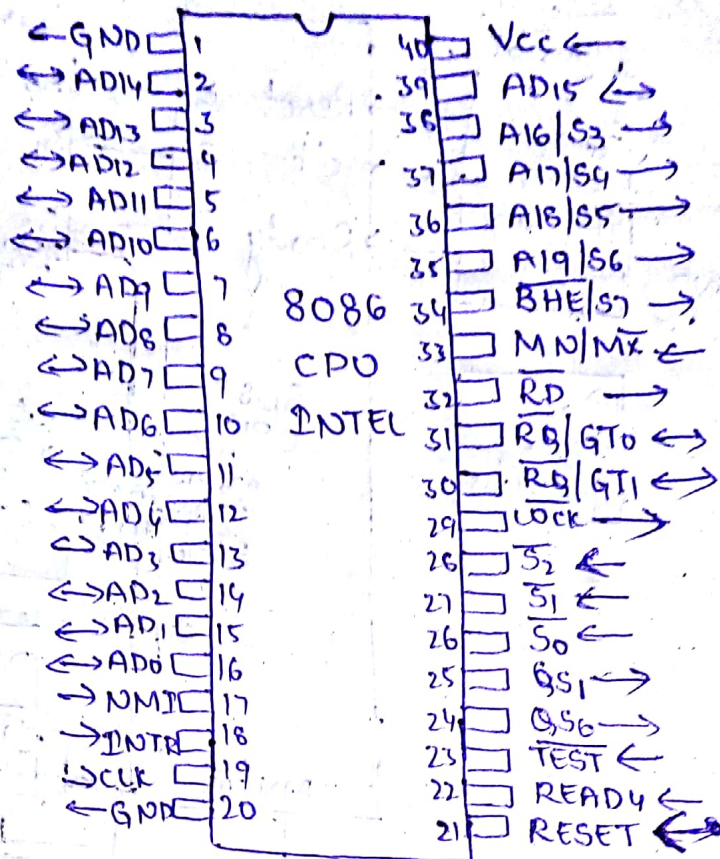 ←GND 1
↔AD14 2
↔AD13 3
↔AD12 4
↔AD11 5
↔AD10 6
↔AD9 7
↔AD8 8
↔AD7 9
↔AD6 10
↔AD5 11
↔AD4 12
↔AD3 13
↔AD2 14
↔AD1 15
↔AD0 16
→NMI 17
→INTR 18
→CLK 19
←GND 20
8086
CPU
INTEL
40 Vcc ←
39 AD15 ↔
38 A16/S3 →
37 A17/S4 →
36 A18/S5 →
35 A19/S6 →
34 B̅H̅E̅/S7 →
33 MN/M̅X̅ ←
32 R̅D̅ →
31 R̅Q̅/GT0 ↔
30 R̅Q̅/GT1 ↔
29 L̅O̅C̅K̅ →
28 S̅2 ←
27 S̅1 ←
26 S̅0 ←
25 QS1 →
24 QS0 →
23 T̅E̅S̅T̅ ←
22 READY ←
21 RESET ←